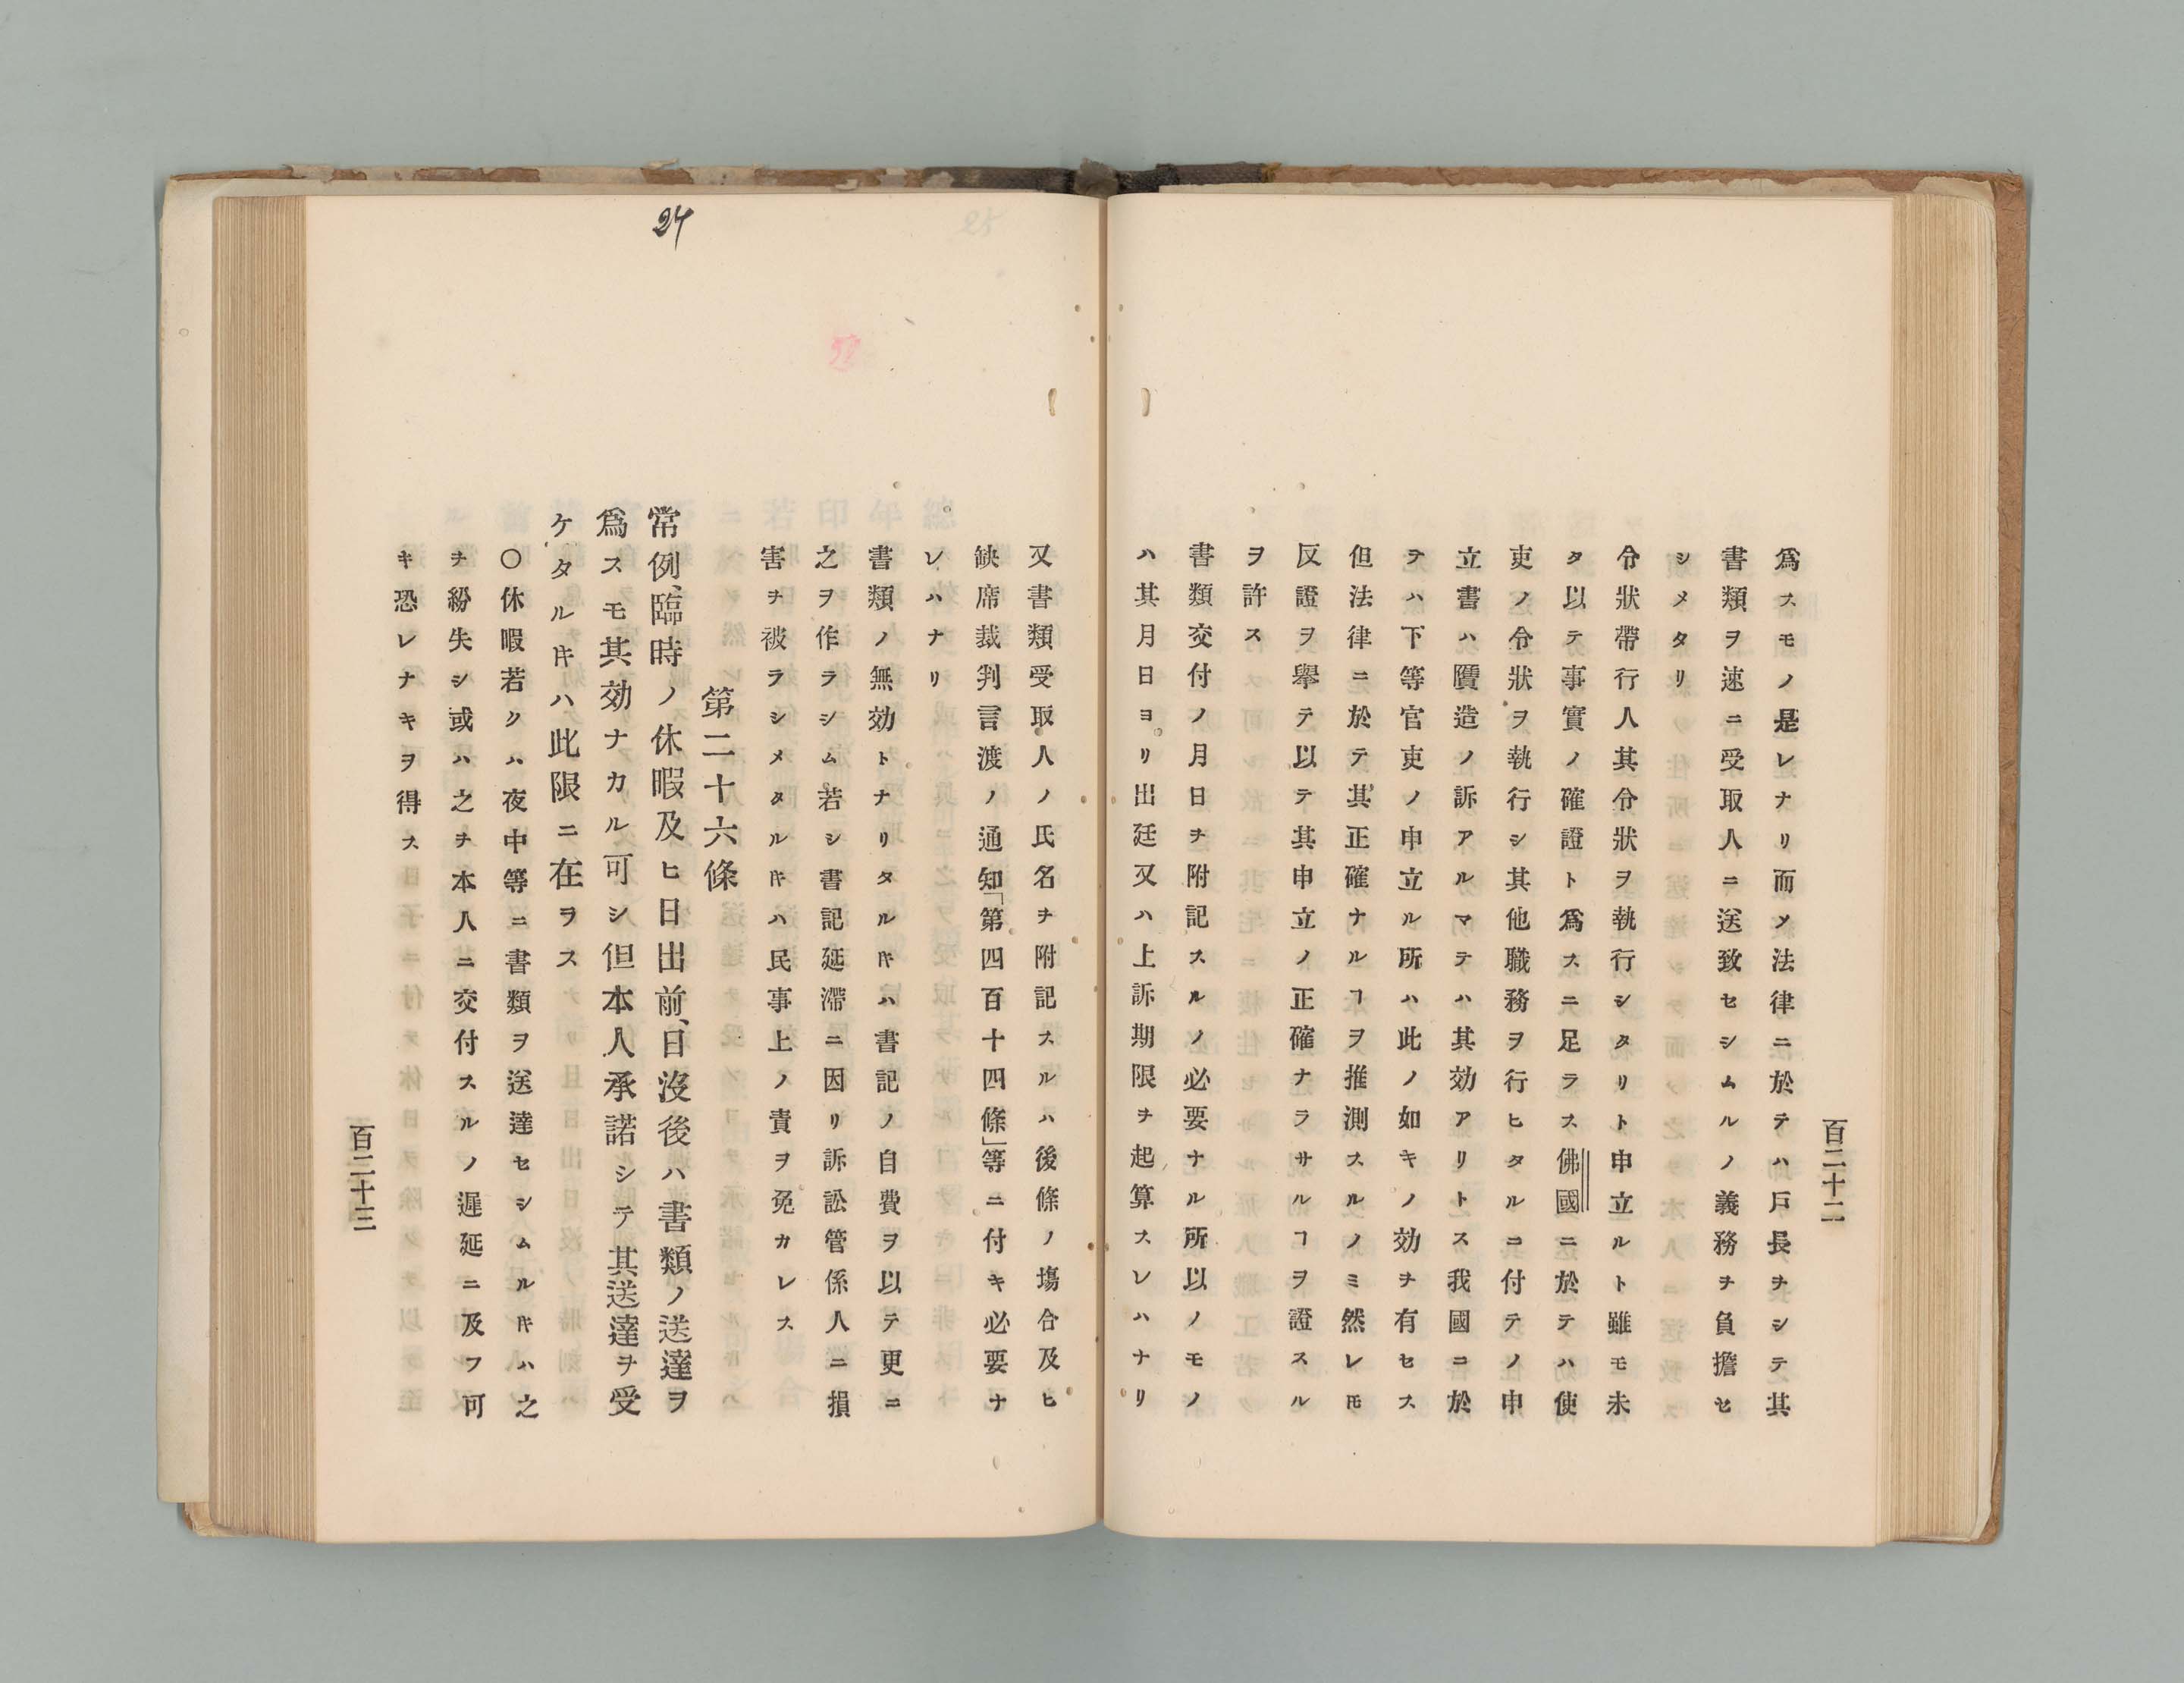 爲スモノ是レナリ而〆法律ニ於テハ戸長ヲシテ其
書類ヲ速ニ受取人ニ送致セシムルノ義務ヲ負擔セ
シメタリ
令狀帶行人其令狀ヲ執行シタリト申立ルト雖モ未
タ以テ事實ノ確證ト爲スニ足ラス佛國ニ於テハ使
吏ノ令狀ヲ執行シ其他職務ヲ行ヒタルニ付テノ申
立書ハ贋造ノ訴アルマテハ其効アリトス我國ニ於
テハ下等官吏ノ申立ル所ハ此ノ如キノ効ヲ有セス
但法律ニ於テ其正確ナルヿヲ推測スルノミ然レ𪜈
反證ヲ擧テ以テ其申立ノ正確ナラサルヿヲ證スル
ヲ許ス
書類交付ノ月日ヲ附記スルノ必要ナル所以ノモノ
ハ其月日ヨリ出廷又ハ上訴期限ヲ起算スレハナリ
百二十二
24
又書類受取人ノ氏名ヲ附記スルハ後條ノ塲合及ヒ
缺席裁判言渡ノ通知「第四百十四條」等ニ付キ必要ナ
レハナリ
書類ノ無効トナリタルキハ書記ノ自費ヲ以テ更ニ
之ヲ作ラシム若シ書記延滯ニ因リ訴訟管係人ニ損
害ヲ被ラシメタルキハ民事上ノ責ヲ免カレス
第二十六條
常例、臨時ノ休暇及ヒ日出前、日沒後ハ書類ノ送達ヲ
爲スモ其効ナカル可シ但本人承諾シテ其送達ヲ受
ケタルキハ此限ニ在ヲス
〇休暇若クハ夜中等ニ書類ヲ送達セシムルキハ之
ヲ紛失シ或ハ之ヲ本人ニ交付スルノ遲延ニ及フ可
キ恐レナキヲ得ス
百二十三